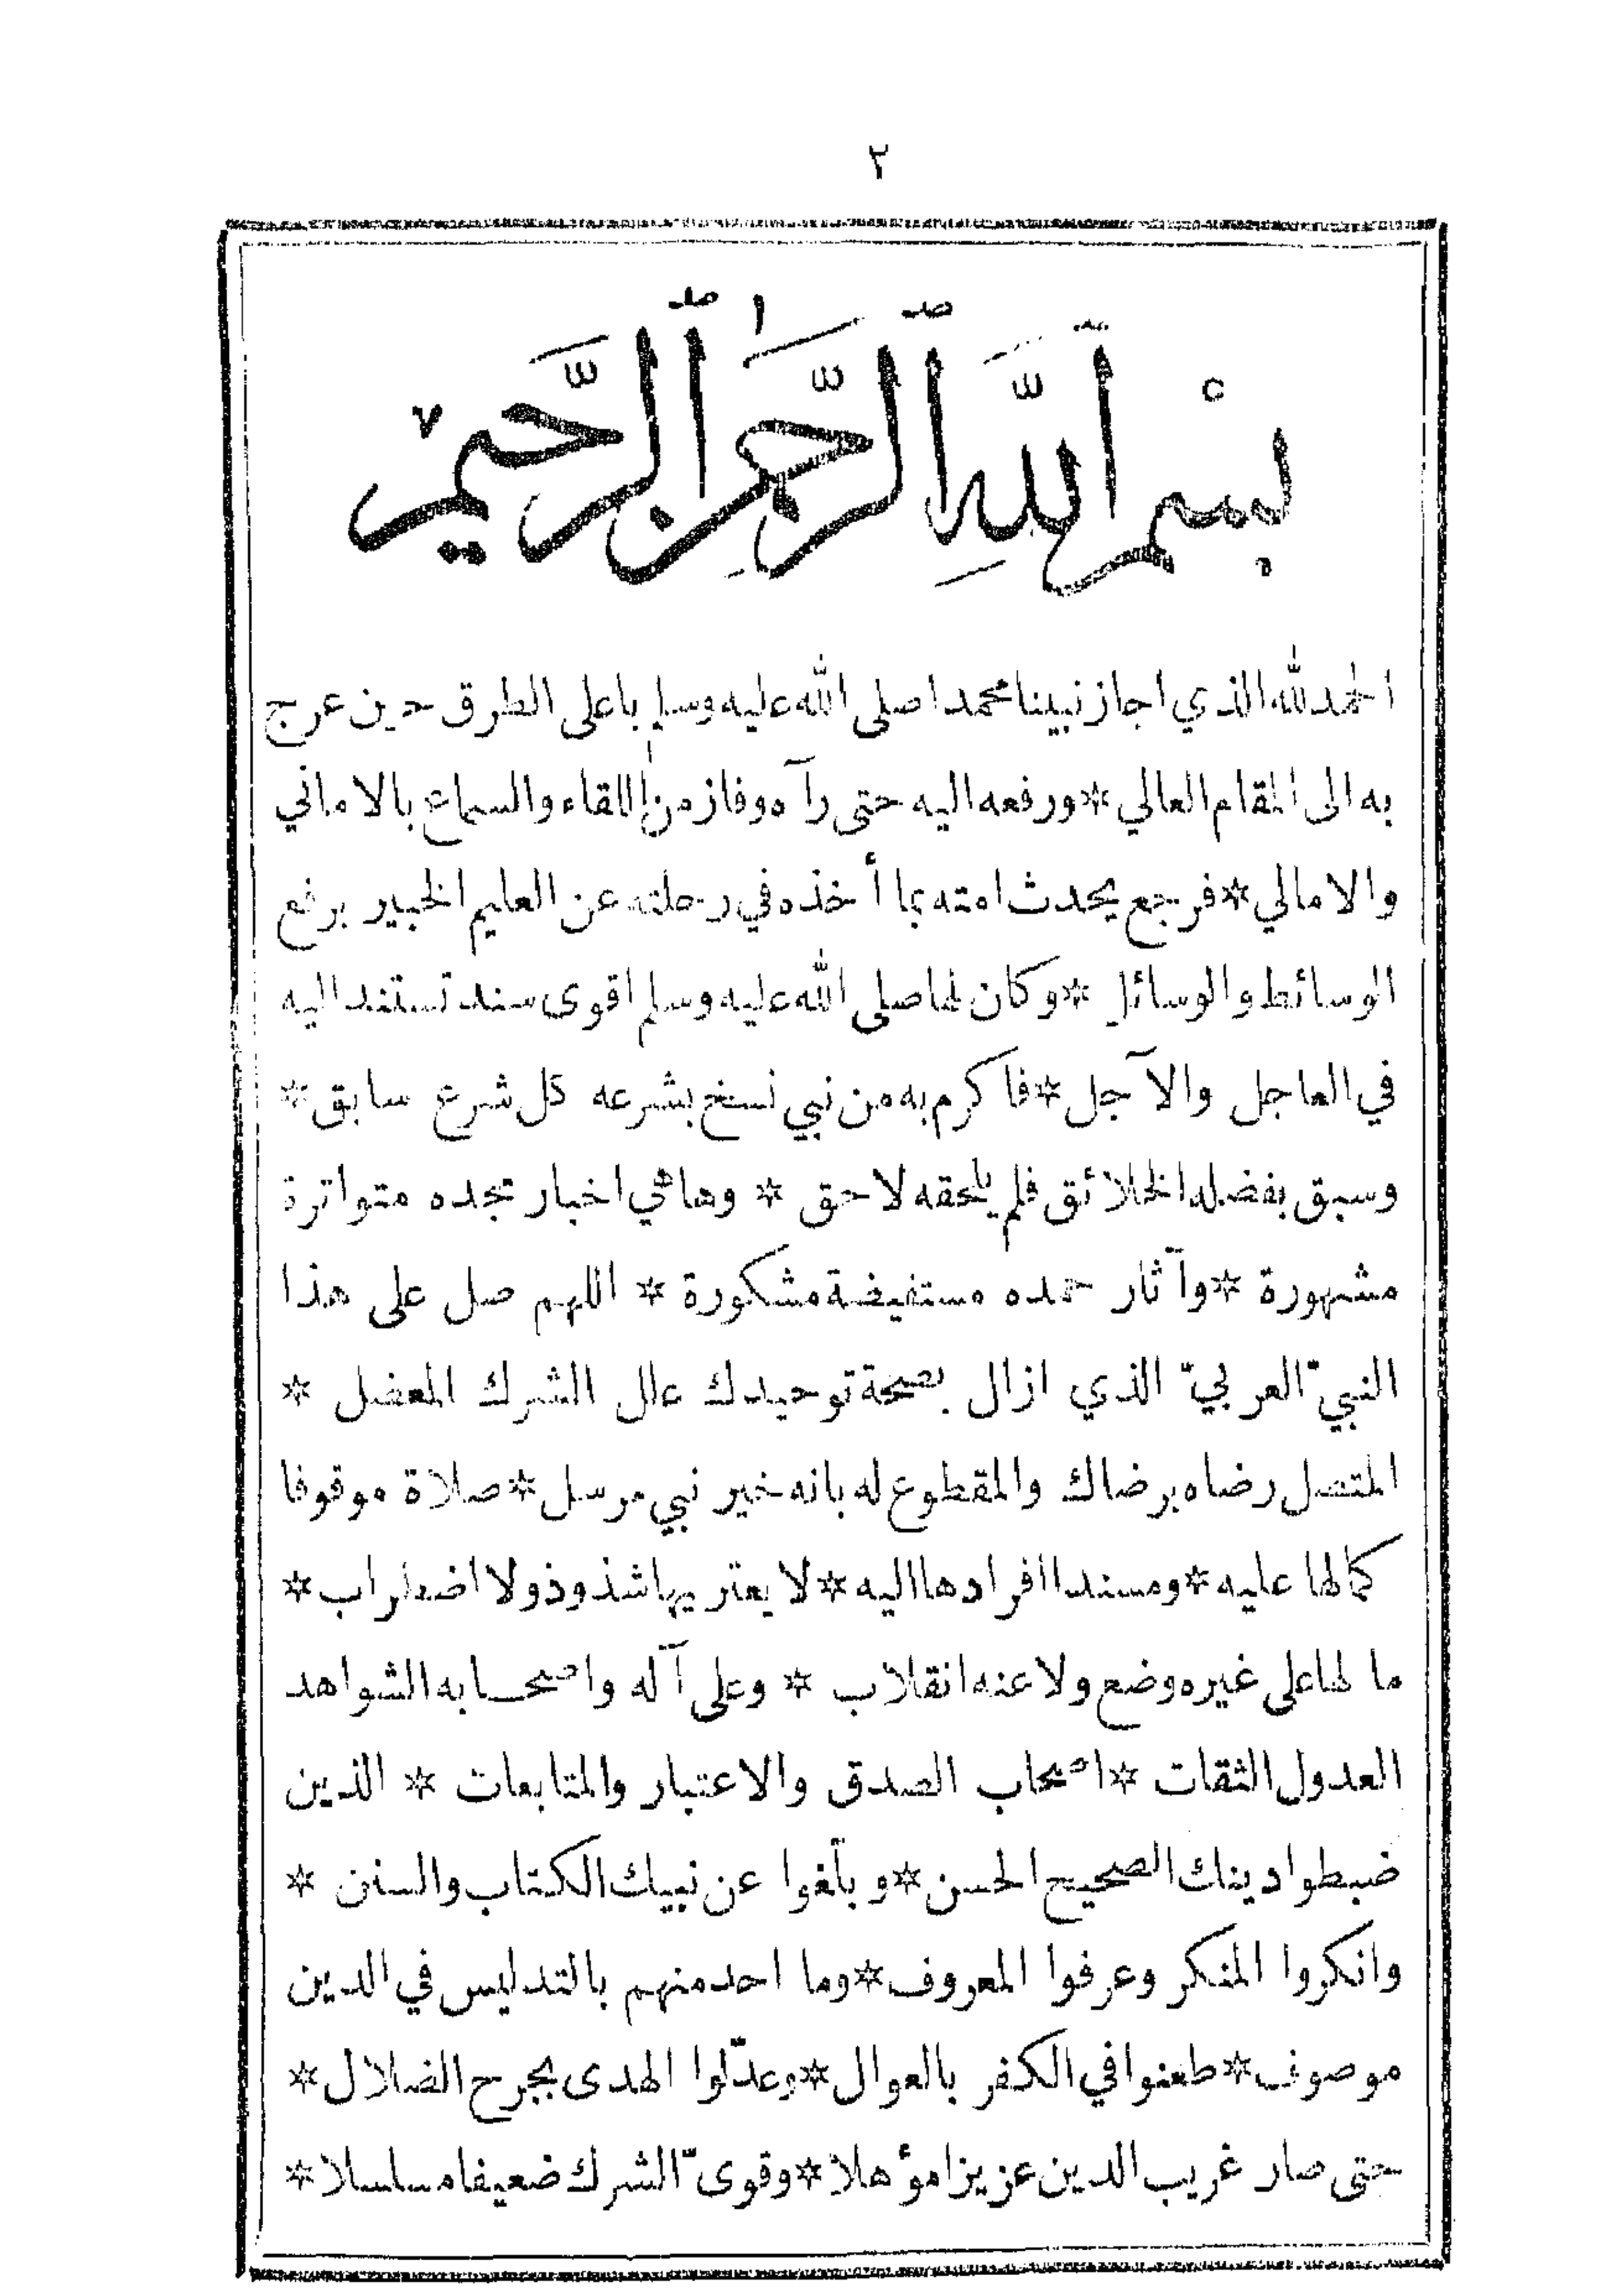 ٢
بسم الله الرحمن الرحيم
الحمد لله الذي اجاز نبينا محمدا صلى الله عليه وسلم باعلى الطرق حين عرج
به الى المقام العالي * ورفعه اليه حتى رآه وفاز من اللقاء والسماع بالاماني
والامالي * فرجع يحدث امته بما أخذه في رحلته عن العليم الخبير برفع
الوسائط والوسائل * وكان لها صلى الله عليه وسلم اقوى سند تستند اليه
في العاجل والآجل * فاكرم به من نبي نسخ بشرعه كل شرع سابق *
وسبق بفضله الخلائق فلم يلحقه لاحق * وها هي اخبار مجده متواترة
مشهورة * وآثار حمده مستفيضة مشكورة * اللهم صل على هذا
النبيّ العربيّ الذي ازال بصحة توحيدك علل الشرك المعضل *
المتصل رضاه برضاك والمقطوع له بانه خير نبي مرسل * صلاة موقوفا
كمالها عليه * ومسندا افرادها اليه * لا يعتريها شذوذ ولا اضطراب *
ما لها على غيره وضع ولا عنه انقلاب * وعلى آله واصحابه الشواهد
العدول الثقات * اصحاب الصدق والاعتبار والمتابعات * الذين
ضبطوا دينك الصحيح الحسن * وبلّغوا عن نبيك الكتاب والسنن *
وانكروا المنكر وعرفوا المعروف * وما احد منهم بالتدليس في الدين
موصوف * طعنوا في الكفر بالعوال * وعدّلوا الهدى بجرح الضلال *
حتى صار غريب الدين عزيزا مؤهلا * وقويّ الشرك ضعيفا مسلسلا *